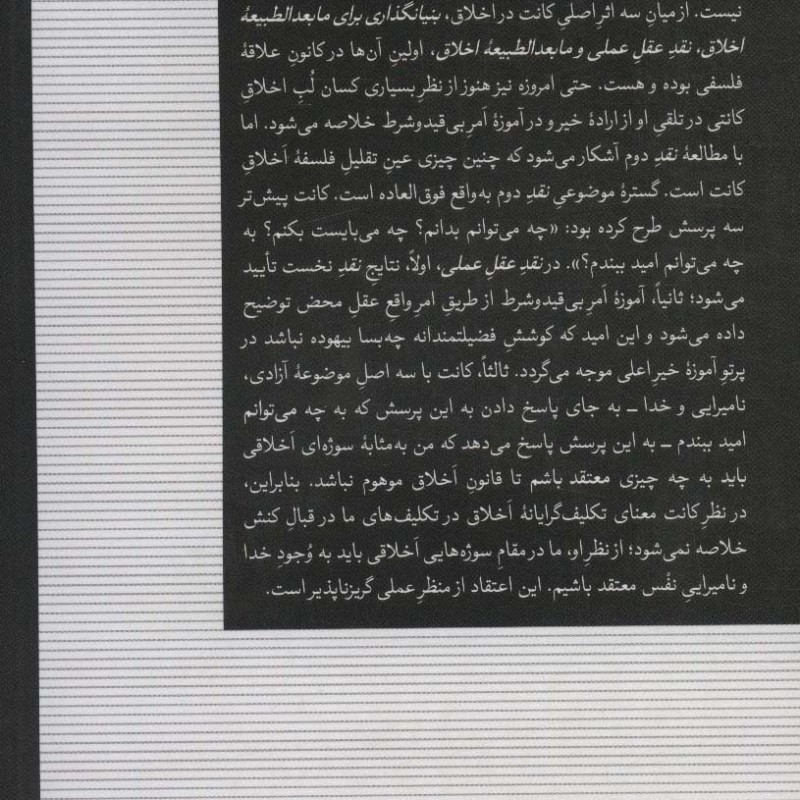 نیست. از میانِ سه اثرِ اصلیِ کانت در اخلاق، بنیانگذاری برای مابعدالطبیعهٔ
اخلاق، نقدِ عقلِ عملی و مابعدالطبیعهٔ اخلاق، اولینِ آن‌ها در کانونِ علاقهٔ
فلسفی بوده و هست. حتی امروزه نیز هنوز از نظرِ بسیاری کسان لُبِ اخلاقِ
کانتی در تلقیِ او از ارادهٔ خیر و در آموزهٔ اَمرِ بی‌قیدوشرط خلاصه می‌شود. اما
با مطالعهٔ نقدِ دوم آشکار می‌شود که چنین چیزی عینِ تقلیلِ فلسفهٔ اَخلاقِ
کانت است. گسترهٔ موضوعیِ نقدِ دوم به‌واقع فوق‌العاده است. کانت پیش‌تر
سه پرسش طرح کرده بود: «چه می‌توانم بدانم؟ چه می‌بایست بکنم؟ به
چه می‌توانم امید ببندم؟». در نقدِ عقلِ عملی، اولاً، نتایجِ نقدِ نخست تأیید
می‌شود؛ ثانیاً، آموزهٔ اَمرِ بی‌قیدوشرط از طریقِ امرِ واقعِ عقلِ محض توضیح
داده می‌شود و این امید که کوششِ فضیلتمندانه چه‌بسا بیهوده نباشد در
پرتوِ آموزهٔ خیرِ اعلی موجه می‌گردد. ثالثاً، کانت با سه اصلِ موضوعهٔ آزادی،
نامیرایی و خدا ــ به جای پاسخ دادن به این پرسش که به چه می‌توانم
امید ببندم ــ به این پرسش پاسخ می‌دهد که من به‌مثابهٔ سوژه‌ای اَخلاقی
باید به چه چیزی معتقد باشم تا قانونِ اَخلاق موهوم نباشد. بنابراین،
در نظرِ کانت معنای تکلیف‌گرایانهٔ اَخلاق در تکلیف‌های ما در قبالِ کنش
خلاصه نمی‌شود؛ از نظرِ او، ما در مقامِ سوژه‌هایی اَخلاقی باید به وُجودِ خدا
و نامیراییِ نَفْس معتقد باشیم. این اعتقاد از منظرِ عملی گریزناپذیر است.